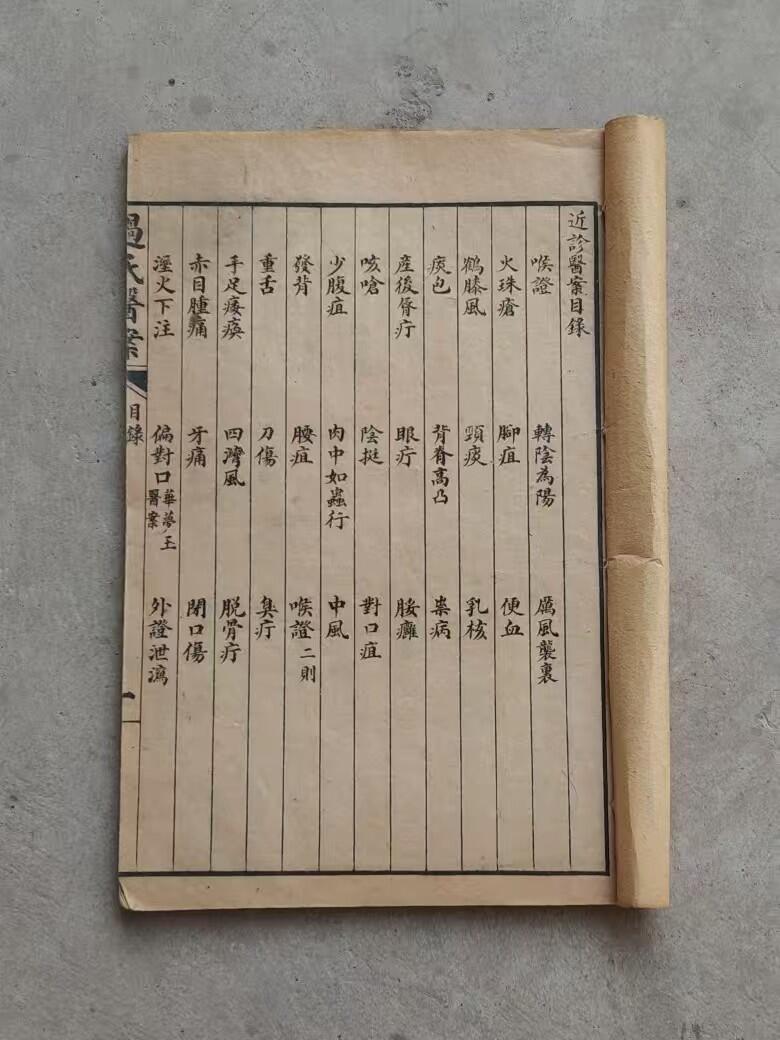 近診醫案目錄
喉證 轉陰為陽 厲風襲裏
火珠瘡 腳疽 便血
鶴膝風 頸痰 乳核
痰包 背脊高凸 祟病
產後脣疔 眼疔 腋癰
咳嗆 陰挺 對口疽
少腹疽 肉中如蟲行 中風
發背 腰疽 喉證二則
重舌 刀傷 鼻疔
手足痿瘓 四灣風 脫骨疔
赤目腫痛 牙痛 閉口傷
溼火下注 偏對口 華夢玉醫案 外證泄瀉
過氏醫案 目錄 一